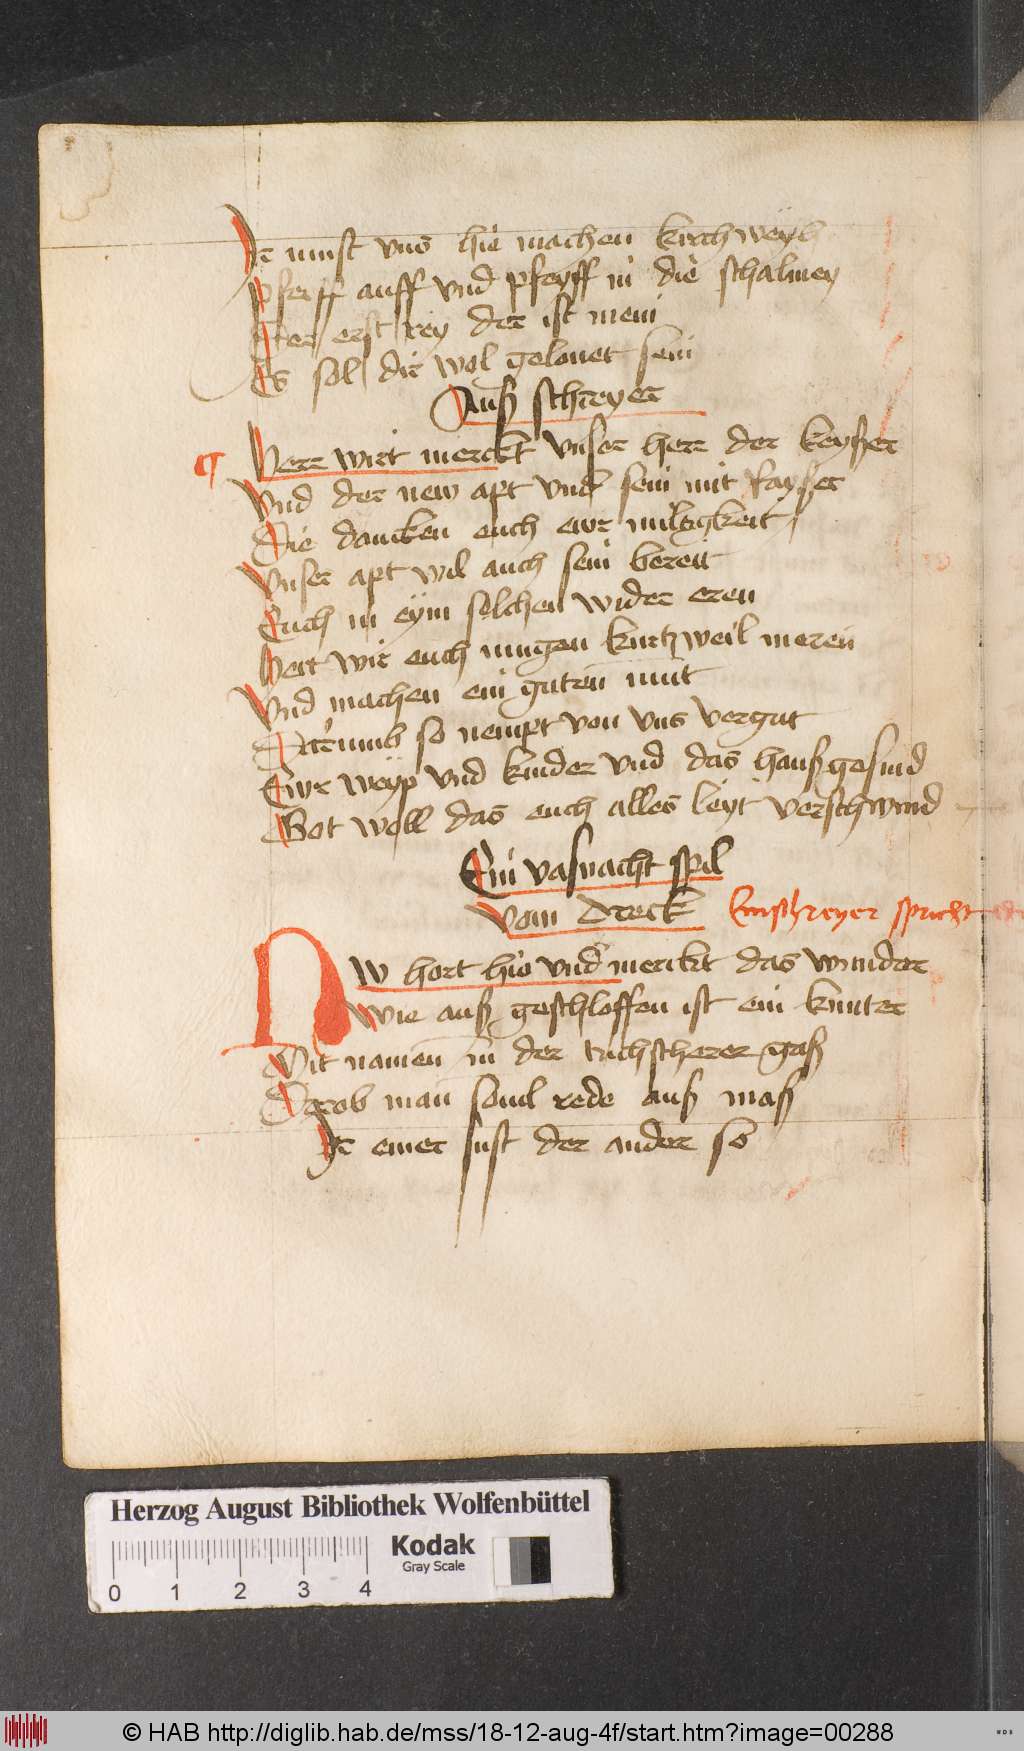 Ir must vns hie machen kirchweyh
Pfeiff auff vnd pfeyff in die schalmey
Der erst rey der ist mein
Es sol dir wol gelonet sein
Auß schreyer
Herr wirt merckt vnser herr der keyßer
Vnd der new apt vnd sein mit
Die dancken euch ewr miltigkeit
Vnser apt wil auch sein bereit
Euch in eym solchen wider eren
Hett wir euch mugen kurtzweil meren
Vnd machen ein guten mut
Darumb so nempt von vns vergut
Ewr weyp vnd kinder vnd das haußgesind
Got woll das euch alles leyt verschwind
Ein vasnacht spil
vom dreck Einschreyer spricht
NW hort hie vnd merckt das wunder
Wie auß geschloffen ist ein kunter
Mit namen in der tuchscherer gaß
Darob man souil rede auß maß
Ir einer sust der ander so
Herzog August Bibliothek Wolfenbüttel
Kodak
Gray Scale
0 1 2 3 4
© HAB http://diglib.hab.de/mss/18-12-aug-4f/start.htm?image=00288